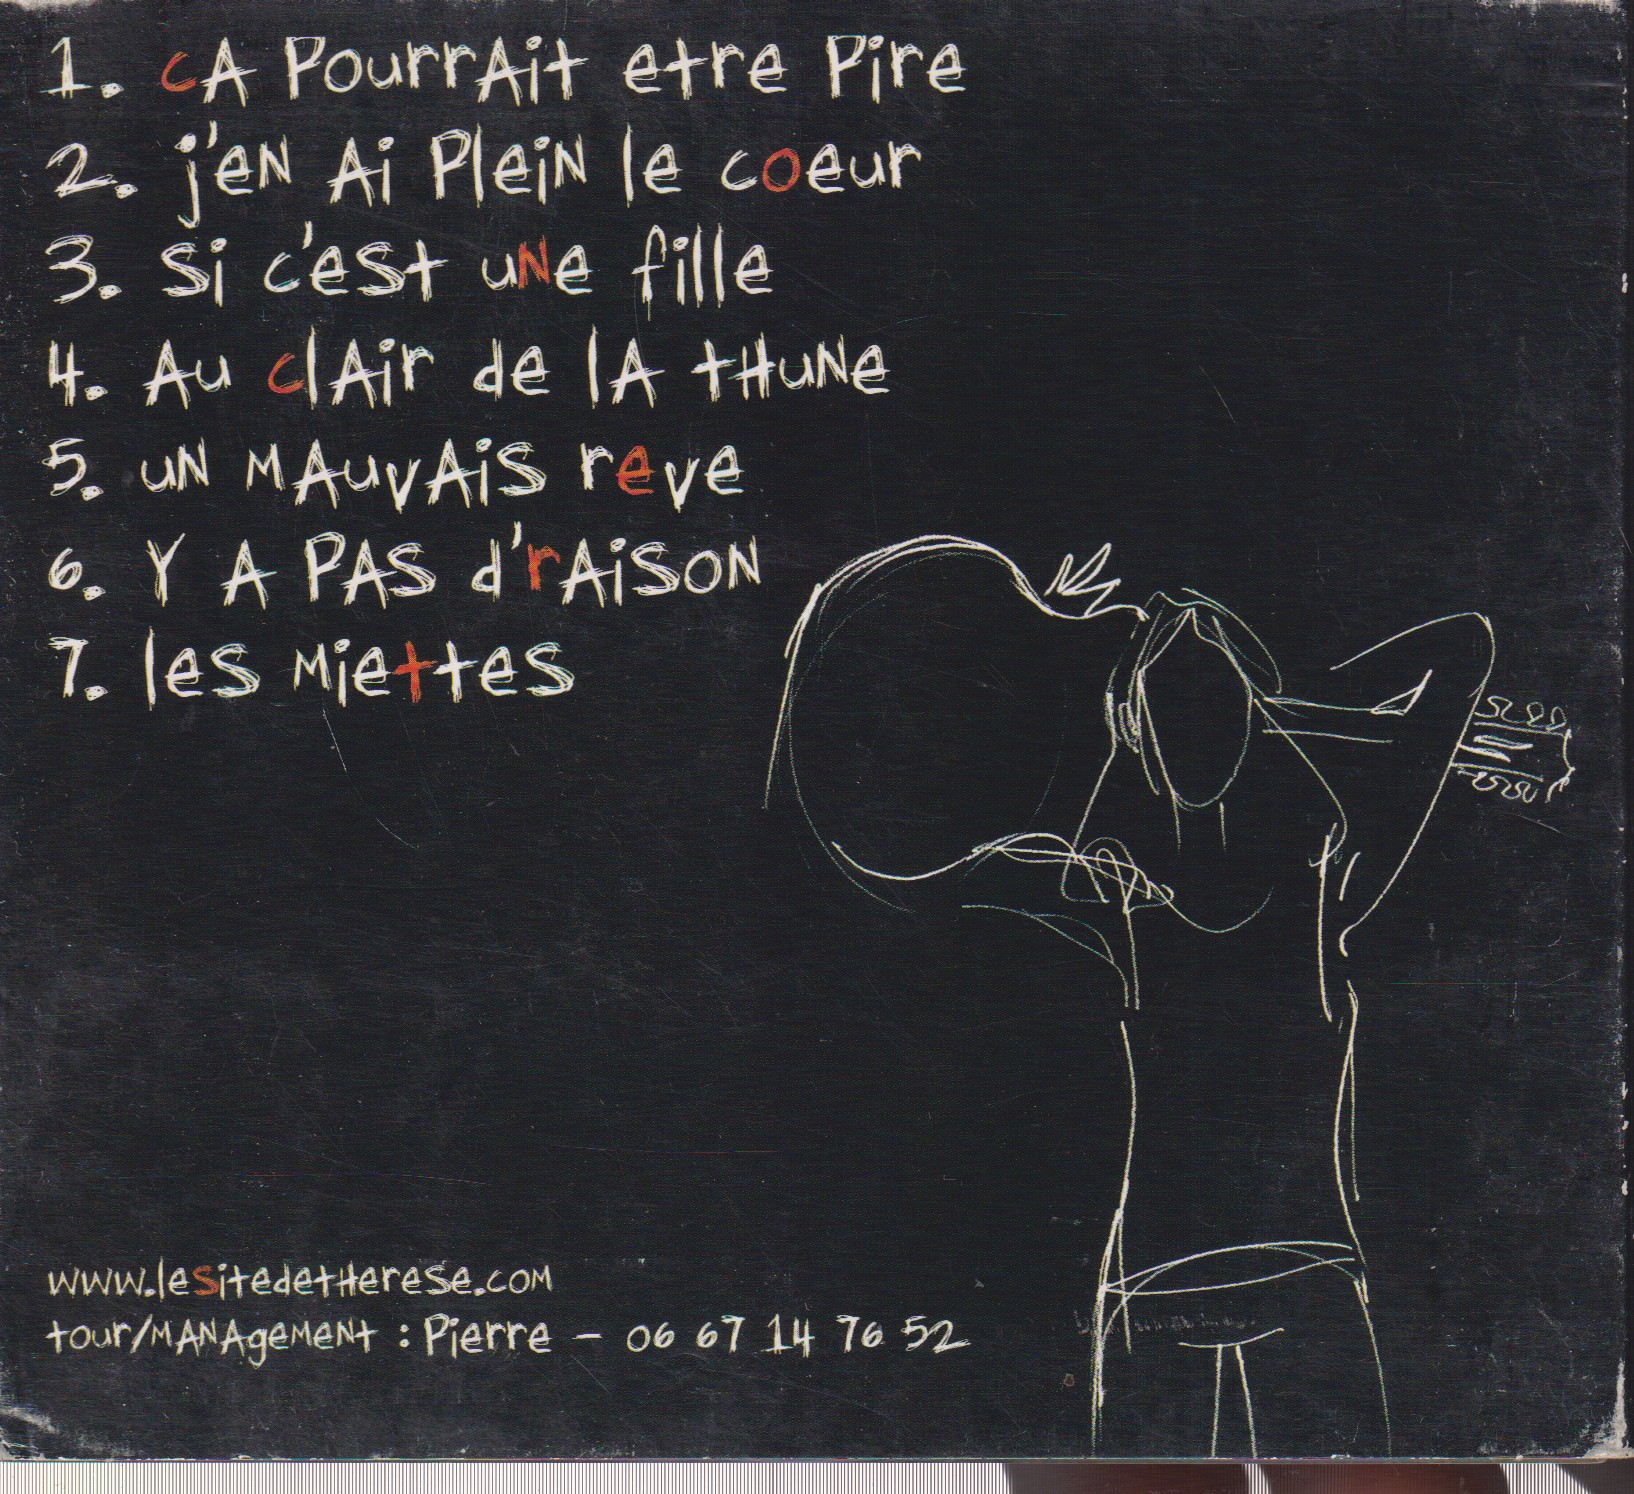 1. cA PourrAit etre Pire
2. j'eN Ai PleiN le coeur
3. si c'est uNe fille
4. Au clAir de lA tHuNe
5. uN MAuvAis reve
6. Y A PAS d'rAiSON
7. les Miettes
www.lesitedetHerese.coM
tour/MANAgeMeNt : Pierre - 06 67 14 76 52